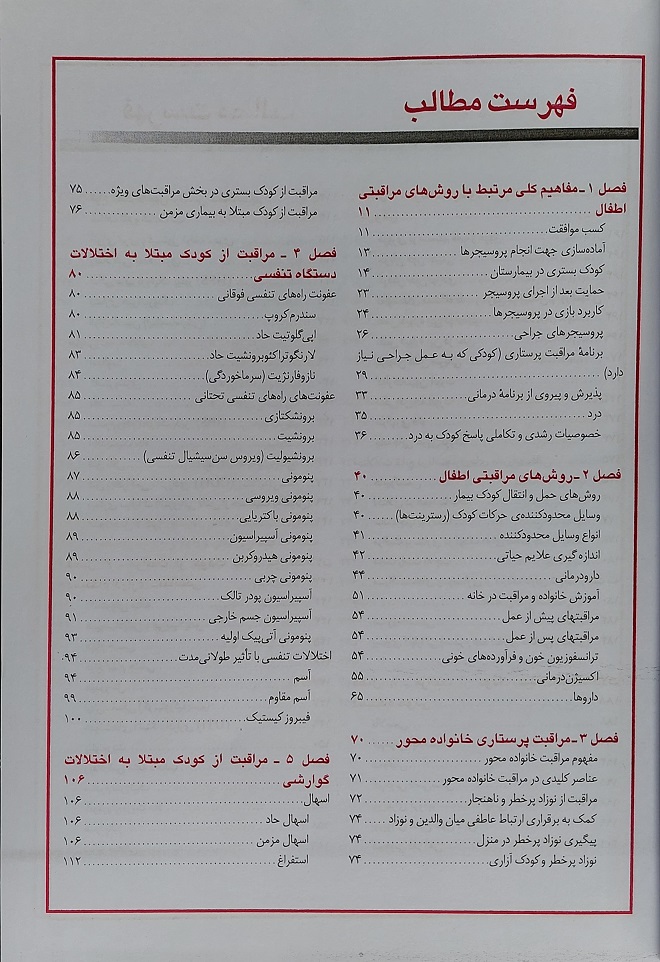 فهرست مطالب
فصل ۱ ـ مفاهیم کلی مرتبط با روش‌های مراقبتی
اطفال ........ ۱۱
کسب موافقت ........ ۱۱
آماده‌سازی جهت انجام پروسیجرها ........ ۱۳
کودک بستری در بیمارستان ........ ۱۴
حمایت بعد از اجرای پروسیجر ........ ۲۳
کاربرد بازی در پروسیجرها ........ ۲۴
پروسیجرهای جراحی ........ ۲۶
برنامهٔ مراقبت پرستاری (کودکی که به عمل جراحی نیاز
دارد) ........ ۲۹
پذیرش و پیروی از برنامهٔ درمانی ........ ۳۳
درد ........ ۳۵
خصوصیات رشدی و تکاملی پاسخ کودک به درد ........ ۳۶
فصل ۲ ـ روش‌های مراقبتی اطفال ........ ۴۰
روش‌های حمل و انتقال کودک بیمار ........ ۴۰
وسایل محدودکننده‌ی حرکات کودک (رسترینت‌ها) ........ ۴۰
انواع وسایل محدودکننده ........ ۴۱
اندازه گیری علایم حیاتی ........ ۴۲
دارودرمانی ........ ۴۴
آموزش خانواده و مراقبت در خانه ........ ۵۱
مراقبتهای پیش از عمل ........ ۵۴
مراقبتهای پس از عمل ........ ۵۴
ترانسفوزیون خون و فرآورده‌های خونی ........ ۵۴
اکسیژن‌درمانی ........ ۵۵
داروها ........ ۶۵
فصل ۳ ـ مراقبت پرستاری خانواده محور ........ ۷۰
مفهوم مراقبت خانواده محور ........ ۷۰
عناصر کلیدی در مراقبت خانواده محور ........ ۷۱
مراقبت از نوزاد پرخطر و ناهنجار ........ ۷۲
کمک به برقراری ارتباط عاطفی میان والدین و نوزاد ..... ۷۴
پیگیری نوزاد پرخطر در منزل ........ ۷۴
نوزاد پرخطر و کودک آزاری ........ ۷۴
مراقبت از کودک بستری در بخش مراقبت‌های ویژه ...... ۷۵
مراقبت از کودک مبتلا به بیماری مزمن ........ ۷۶
فصل ۴ ـ مراقبت از کودک مبتلا به اختلالات
دستگاه تنفسی ........ ۸۰
عفونت راه‌های تنفسی فوقانی ........ ۸۰
سندرم کروپ ........ ۸۰
اپی‌گلوتیت حاد ........ ۸۱
لارنگوتراکئوبرونشیت حاد ........ ۸۳
نازوفارنژیت (سرماخوردگی) ........ ۸۴
عفونت‌های راه‌های تنفسی تحتانی ........ ۸۵
برونشکتازی ........ ۸۵
برونشیت ........ ۸۵
برونشیولیت (ویروس سن‌سیشیال تنفسی) ........ ۸۶
پنومونی ........ ۸۷
پنومونی ویروسی ........ ۸۸
پنومونی باکتریایی ........ ۸۸
پنومونی آسپیراسیون ........ ۸۹
پنومونی هیدروکربن ........ ۸۹
پنومونی چربی ........ ۹۰
آسپیراسیون پودر تالک ........ ۹۰
آسپیراسیون جسم خارجی ........ ۹۱
پنومونی آتی‌پیک اولیه ........ ۹۳
اختلالات تنفسی با تأثیر طولانی‌مدت ........ ۹۴
آسم ........ ۹۴
آسم مقاوم ........ ۹۹
فیبروز کیستیک ........ ۱۰۰
فصل ۵ ـ مراقبت از کودک مبتلا به اختلالات
گوارشی ........ ۱۰۶
اسهال ........ ۱۰۶
اسهال حاد ........ ۱۰۶
اسهال مزمن ........ ۱۰۶
استفراغ ........ ۱۱۲